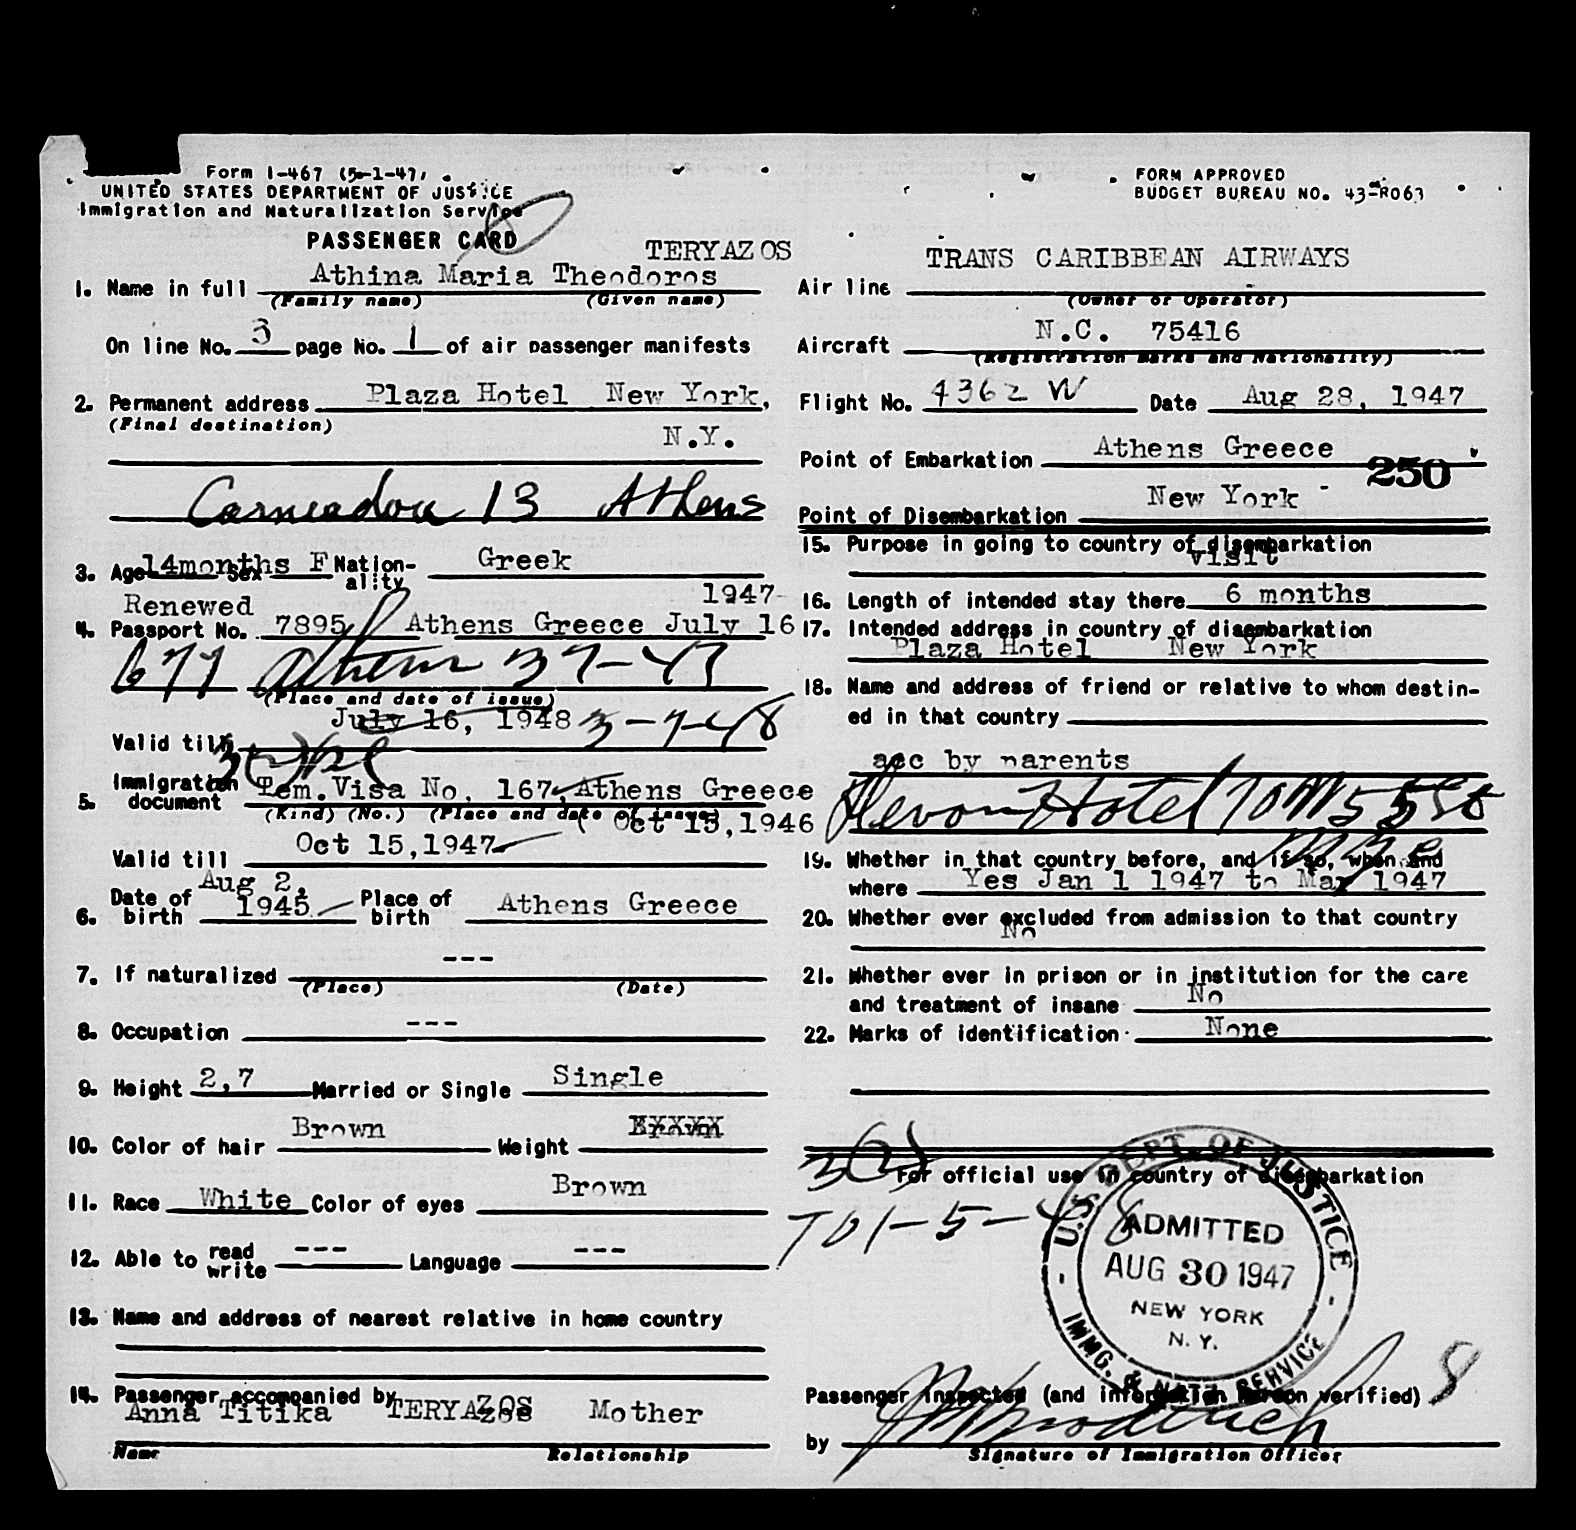 Form I-467 (5-1-47)
UNITED STATES DEPARTMENT OF JUSTICE
Immigration and Naturalization Service
PASSENGER CARD
TERYAZOS
1. Name in full Athina Maria Theodoros
(Family name) (Given name)
On line No. 3 page No. 1 of air passenger manifests
2. Permanent address Plaza Hotel New York,
(Final destination)
N.Y.
Carneadou 13 Athens
3. Age 14months Sex F Nation-ality Greek
Renewed 1947
4. Passport No. 7895 Athens Greece July 16
677 Athens 3 7-47
(Place and date of issue)
July 16, 1948 3-7-48
Valid till
5. Immigration document Tem. Visa No. 167, Athens Greece
(Kind) (No.) (Place and date of issue)
( Oct 15,1946
Valid till Oct 15,1947
6. Date of birth Aug 2, 1945 Place of birth Athens Greece
7. If naturalized ---
(Place) (Date)
8. Occupation ---
9. Height 2,7 Married or Single Single
10. Color of hair Brown Weight
11. Race White Color of eyes Brown
12. Able to read write --- Language ---
13. Name and address of nearest relative in home country
14. Passenger accompanied by
Anna Titika TERYAZOS Mother
Name Relationship
FORM APPROVED
BUDGET BUREAU NO. 43-R063
TRANS CARIBBEAN AIRWAYS
Air line
(Owner or Operator)
Aircraft N.C. 75416
(Registration marks and Nationality)
Flight No. 4362 W Date Aug 28, 1947
Point of Embarkation Athens Greece
250
Point of Disembarkation New York -
15. Purpose in going to country of disembarkation
visit
16. Length of intended stay there 6 months
17. Intended address in country of disembarkation
Plaza Hotel New York
18. Name and address of friend or relative to whom destin-
ed in that country
acc by parents
Devon Hotel 70 W 55 St
NYC
19. Whether in that country before, and if so, when and
where Yes Jan 1 1947 to Mar 1947
20. Whether ever excluded from admission to that country
No
21. Whether ever in prison or in institution for the care
and treatment of insane No
22. Marks of identification None
3(2)
For official use in country of disembarkation
TO 1-5-48
U.S. DEPT. OF JUSTICE
ADMITTED
AUG 30 1947
NEW YORK
N. Y.
IMMG. & NATZ. SERVICE
Passenger inspected (and information hereon verified) 8
by
Signature of Immigration Officer